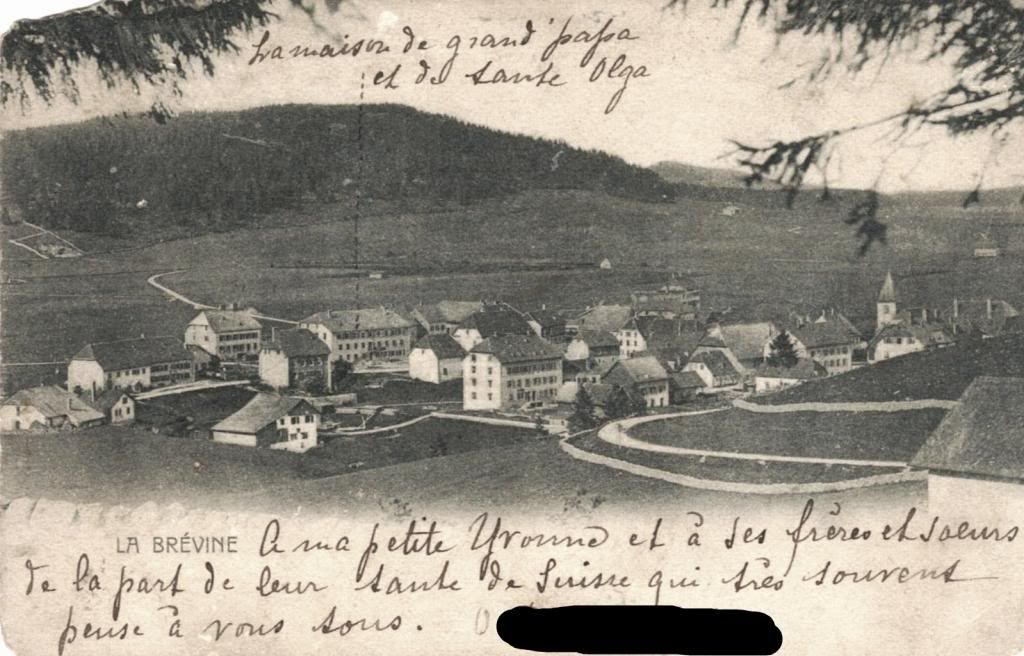 La maison de grand'papa
et de tante Olga
LA BRÉVINE A ma petite Yvonne et à ses frères et soeurs
de la part de leur tante de Suisse qui très souvent
pense à vous tous.